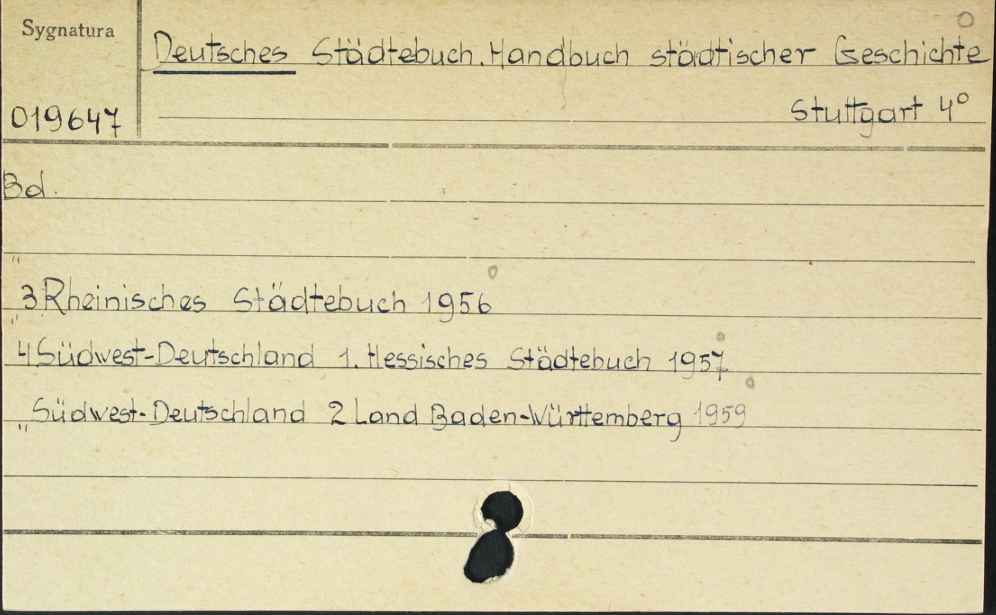 Sygnatura
Deutsches Städtebuch. Handbuch städtischer Geschichte
019647
Stuttgart 4°
Bd.
"
3 Rheinisches Städtebuch 1956
"
4 Südwest-Deutschland 1. Hessisches Städtebuch 1957
Südwest-Deutschland 2 Land Baden-Württemberg 1959
"